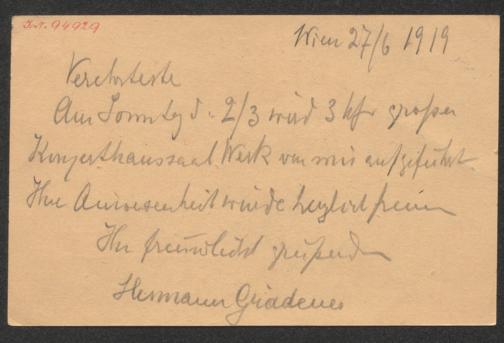 I.N. 94929
Wien 27/6 1919
Verehrteste
Am Sonntag d. 2/3 wird 3 Uhr großer
Konzerthaussaal Werk von mir aufgeführt.
Ihre Anwesenheit würde herzlich freuen
Ihr freundlichst grüßender
Hermann Grädener